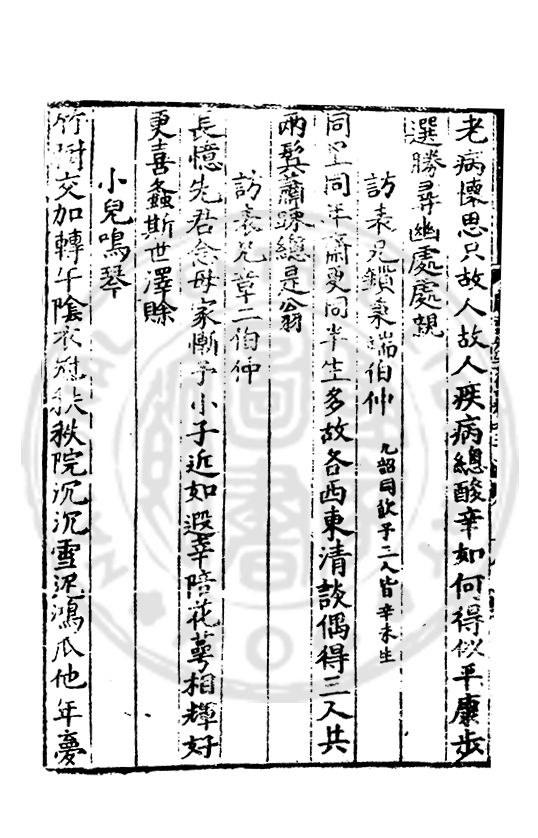 老病懷思只故人故人疾病總酸辛如何得似平康步
選勝尋幽處處親
訪表兄鎖秉端伯仲 允韶同飲予二人皆辛未生
同里同年齋更同半生多故各西東清談偶得三人共
兩鬂蕭踈總是翁
訪表兄章二伯仲
長憶先君念母家慚予小子近如遐幸陪花萼相輝好
更喜螽斯世澤賖
小兒鳴琴
竹樹交加轉午陰衣冠秩秩院沉沉雪泥鴻爪他年夢